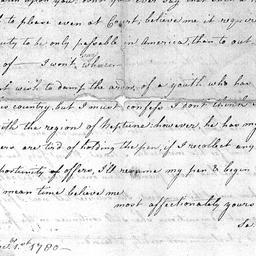 to please even at Court, believe me it requir
uty to be only passable in America, than to out
of — I won't say where
t wish to damp the ardor of a youth who has
is country, but I must confess I dont think
ith the region of Neptune: however, he has my
ers are tired of holding the pen, if I recollect any
pportunity offers, I'll resume my pen & begin
mean time believe me
most affectionately yours
1st 1780 —